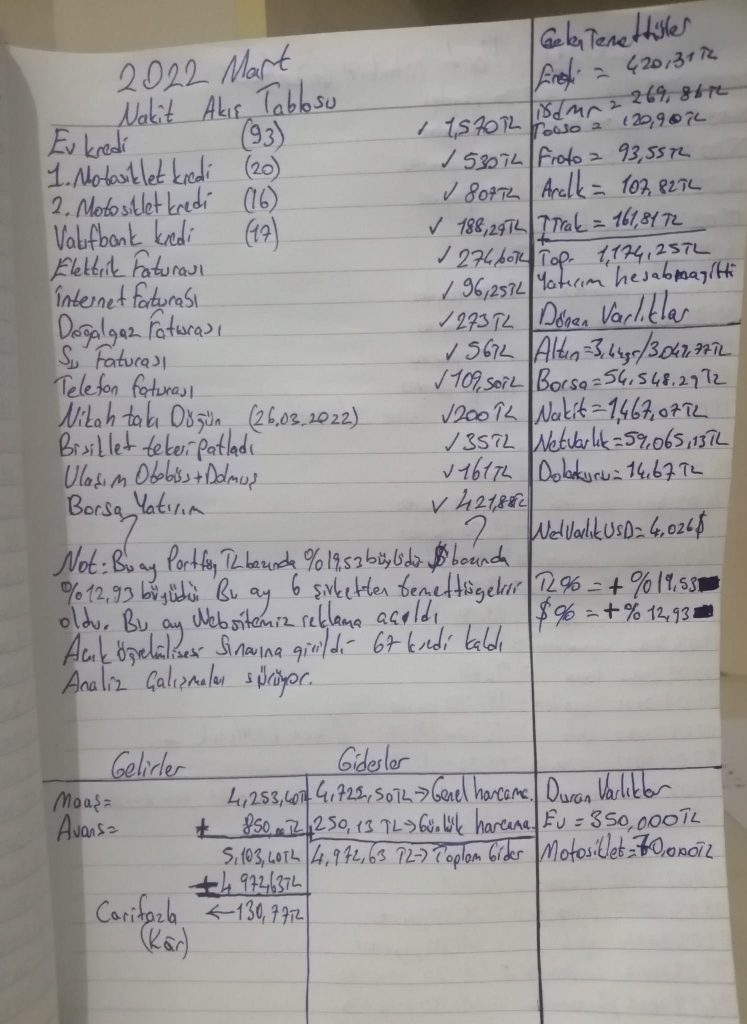 2022 Mart
Nakit Akış Tablosu
Ev kredi (93) ✓ 1,570TL
1. Motosiklet kredi (20) ✓ 530TL
2. Motosiklet kredi (16) ✓ 807TL
Vakıfbank kredi (17) ✓ 188,29TL
Elektrik Faturası ✓ 274,60TL
İnternet Faturası ✓ 96,25TL
Doğalgaz Faturası ✓ 273TL
Su Faturası ✓ 56TL
Telefon faturası ✓ 109,50TL
Nikah takı Düğün (26.03.2022) ✓ 200TL
Bisiklet tekeri patladı ✓ 35TL
Ulaşım Otobüs+Dolmuş ✓ 161TL
Borsa Yatırım ✓ 421,88TL
Not: Bu ay Portföy TL bazında %19,53 büyüdü $ bazında
%12,93 büyüdü Bu ay 6 şirketten temettü geliri
oldu. Bu ay Websitemiz reklama açıldı
Açık öğretim lisesi Sınavına girildi 67 kredi kaldı
Analiz Çalışmaları sürüyor.
Gelen Temettüler
Eregli = 420,31TL
isdmr = 269,86TL
Toaso = 120,90TL
Froto = 93,55TL
Arclk = 107,82TL
+ TTrak = 161,81TL
Top. 1,174,25TL
Yatırım hesabına gitti
Dönen Varlıklar
Altın=3,44gr/3.047,77TL
Borsa=54,548,29TL
Nakit=1,467,07TL
NetVarlık=59,065,13TL
Dolarkuru=14,67TL
NetVarlıkUSD=4,026$
TL% = + %19,53
$% = + %12,93
Gelirler
Maaş= 4,253,40TL
Avans= + 850,00TL
5,103,40TL
4,972,63TL
Carifazla ← 130,77TL
(Kâr)
Giderler
4,722,50TL → Genel harcama
+ 250,13 TL → Günlük harcama
4,972,63 TL → Toplam Gider
Duran Varlıklar
Ev = 350,000TL
Motosiklet=70,000TL